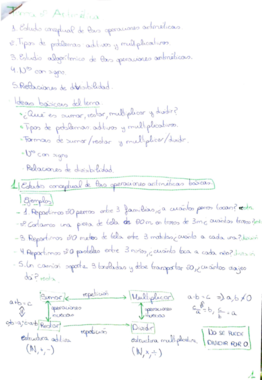 Tema 2: Aritmética
1. Estudio conceptual de las operaciones aritméticas.
2. Tipos de problemas aditivos y multiplicativos.
3. Estudio algorítmico de las operaciones aritméticas.
4. Nos con signo.
5. Relaciones de divisibilidad.
Ideas básicas del tema
- ¿Qué es sumar, restar, multiplicar y dividir?
- Tipos de problemas aditivos y multiplicativos.
- Formas de sumar/restar y multiplicar/dividir.
- Nos con signo
- Relaciones de divisibilidad.
1. Estudio conceptual de las operaciones aritméticas básicas.
Ejemplos
- 1. Repartimos 20 perros entre 3 familias, ¿a cuántos perros tocan?
- 2. Cortamos una pieza de tela de 20 m en trozos de 3m ¿cuántos trozos
- 3. Repartimos 20 metros de tela entre 3 ¿cuánto a cada una?
- 4. Repartimos 20 pasteles entre 3 ¿cuánto toca a cada uno?
- 5. Un camión soporta 3 toneladas y debe transportar 20, ¿cuántos viajes
da?
Sumar
repetición
Multiplicar
a+b=c
operaciones
inversas
operaciones
inversas
a·b=c
Restar
repetición
Dividir
estructura aditiva
(N, +, -)
estructura multiplicativa
(N, ×, ÷)
NO SE PUEDE
DIVIDIR POR 0
1